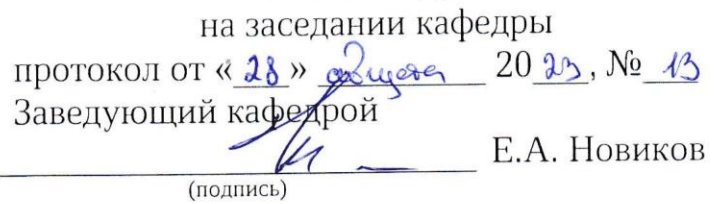 на заседании кафедры
протокол от «28» августа 2023, № 13
Заведующий кафедрой
Е.А. Новиков
(подпись)